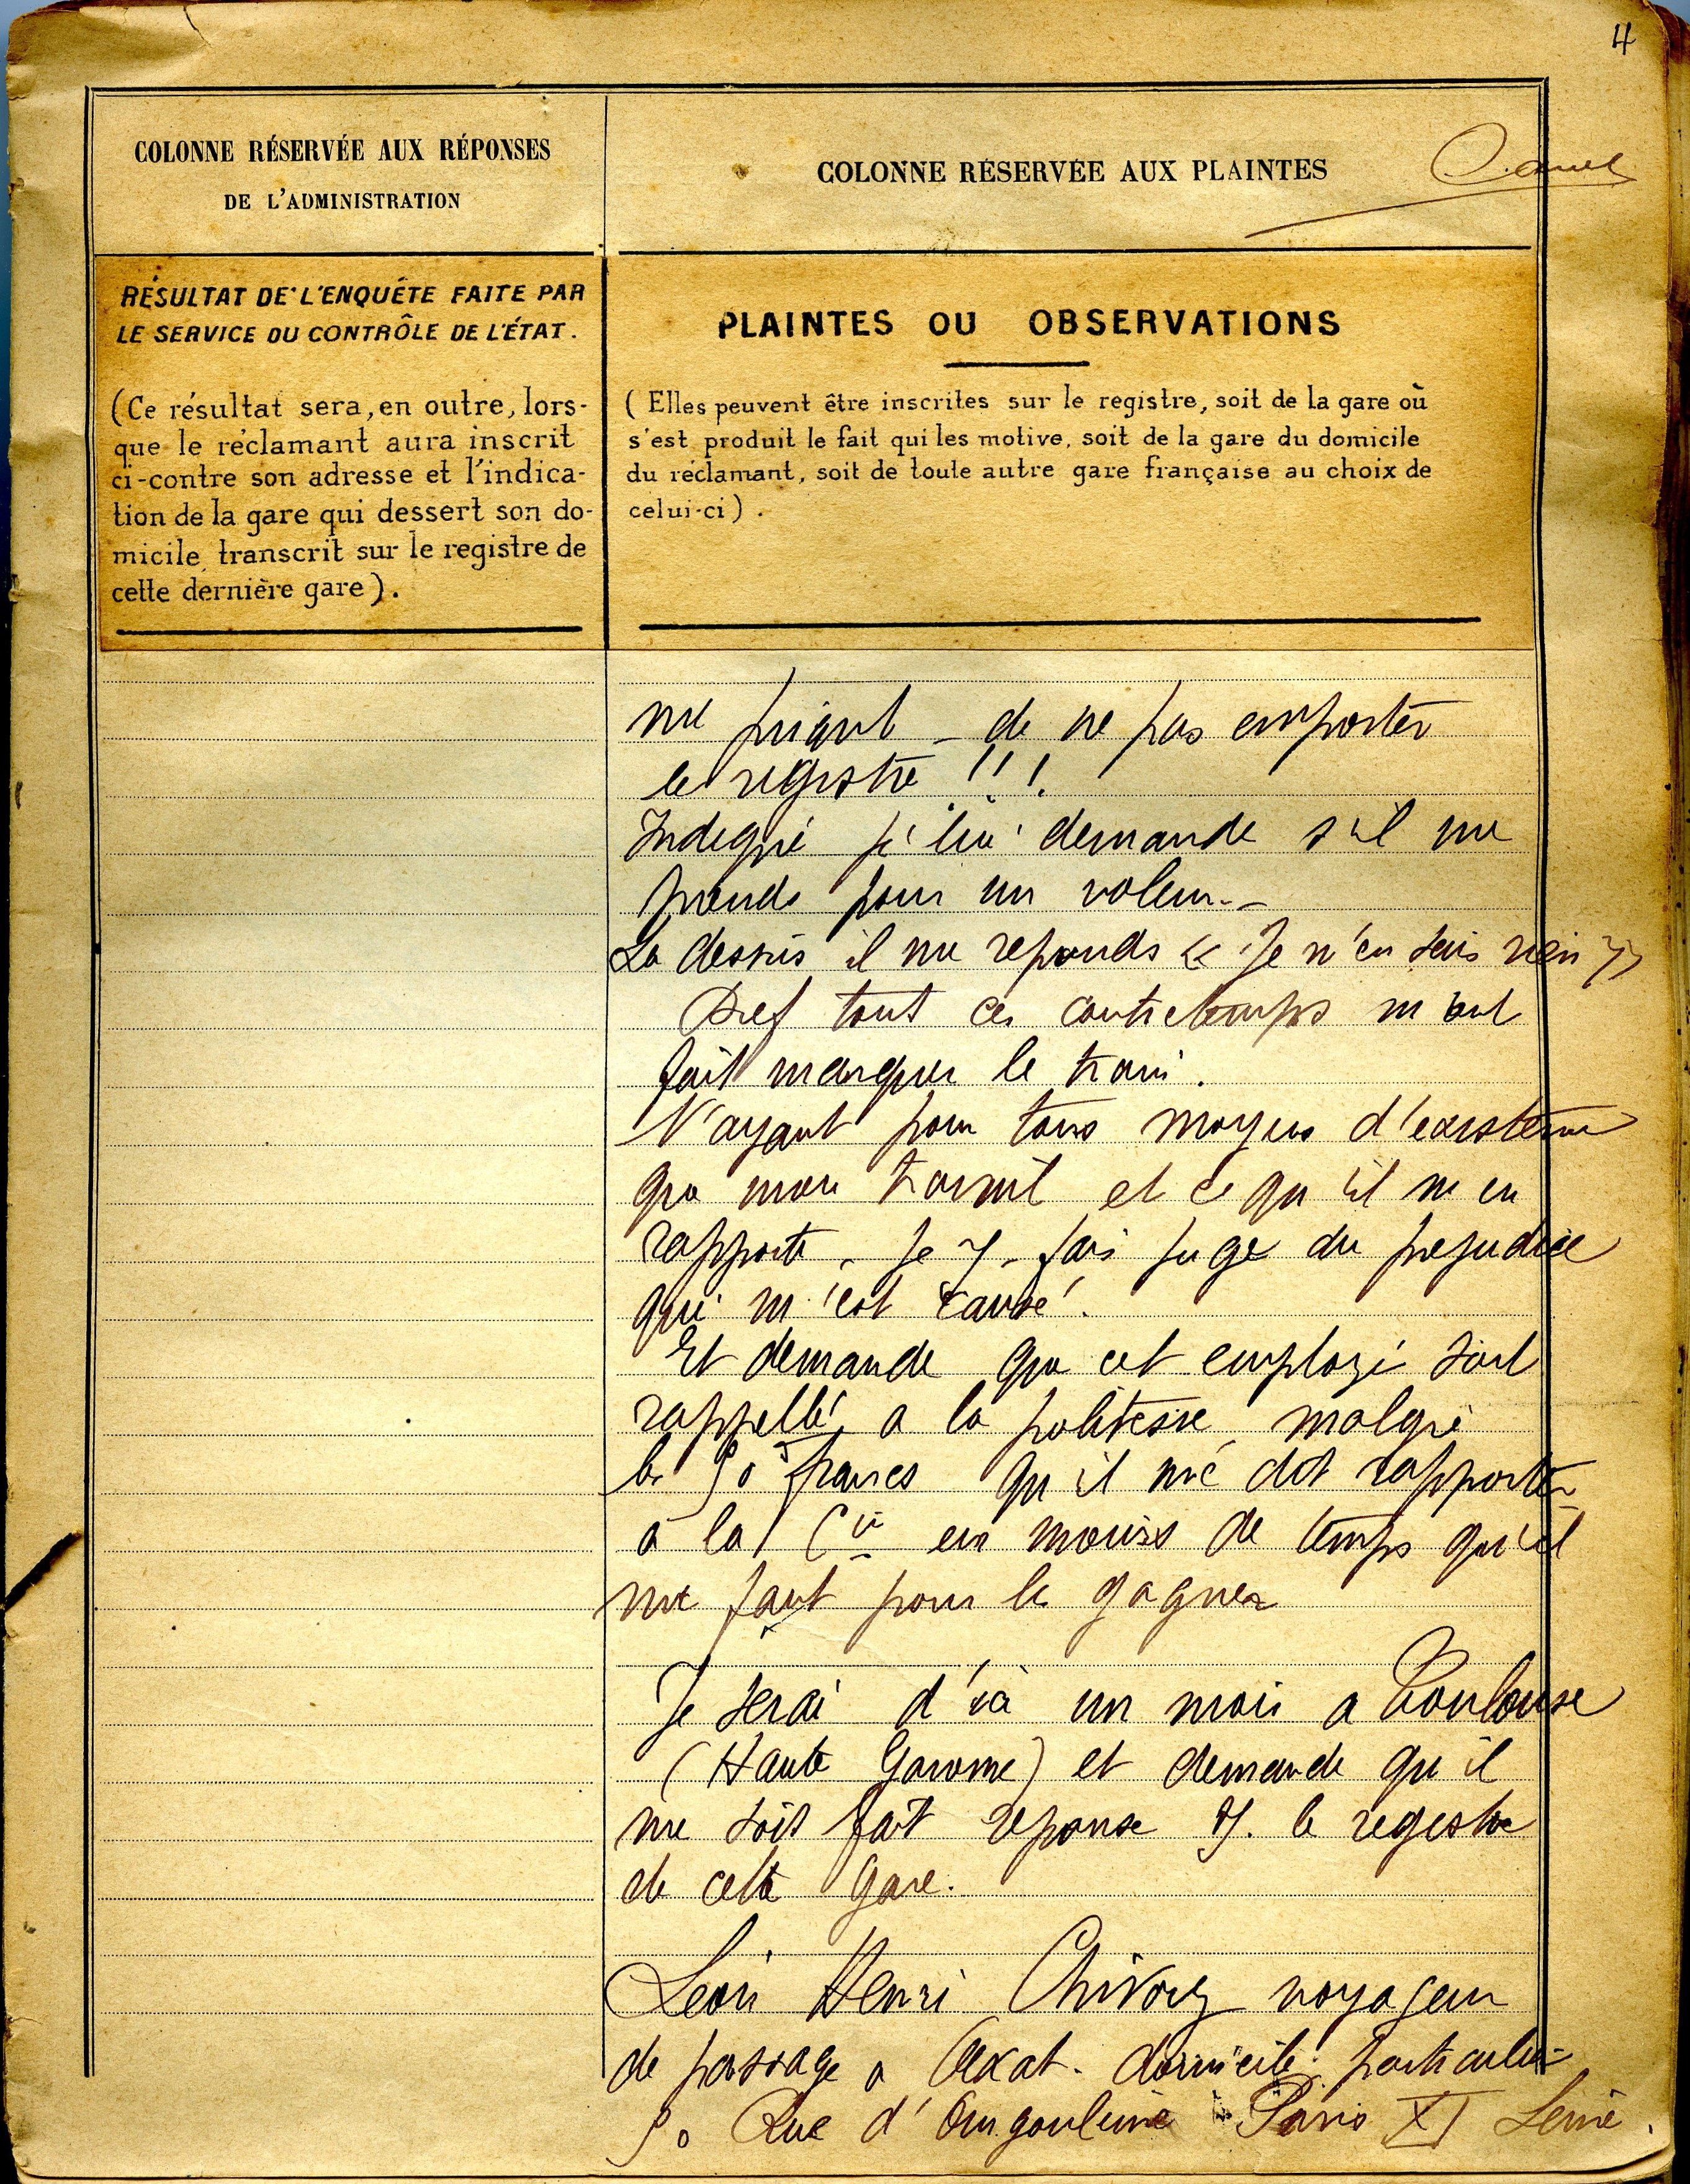 4
COLONNE RÉSERVÉE AUX RÉPONSES
DE L'ADMINISTRATION
COLONNE RÉSERVÉE AUX PLAINTES
RÉSULTAT DE L'ENQUÊTE FAITE PAR
LE SERVICE DU CONTRÔLE DE L'ÉTAT.
(Ce résultat sera, en outre, lors-
que le réclamant aura inscrit
ci-contre son adresse et l'indica-
tion de la gare qui dessert son do-
micile, transcrit sur le registre de
cette dernière gare).
PLAINTES OU OBSERVATIONS
(Elles peuvent être inscrites sur le registre, soit de la gare où
s'est produit le fait qui les motive, soit de la gare du domicile
du réclamant, soit de toute autre gare française au choix de
celui-ci).
me priant - de ne pas emporter
le registre !!!
Indigné je lui demande s'il me
prends pour un voleur.-
La dessus il me reponds « Je n'en sais rien »
Bref tout ces contretemps m'ont
fait manquer le train.
N'ayant pour tous moyens d'existence
que mon travail et ce qu'il m'en
rapporte. Je y fais juge du prejudice
qui m'est causé.
Et demande que cet employé soit
rappellé a la politesse malgré
les 50 francs qu'il me doit rapporter
à la Cie en moins de temps qu'il
me faut pour les gagner
Je serai d'ici un mois a Toulouse
(Haute Garonne) et demande qu'il
me soit fait reponse s/. le registre
de cette gare.
Leon Henri voyageur
de passage a Axat. domicile particulier
50 Rue d'Angoulème Paris XI Seine.